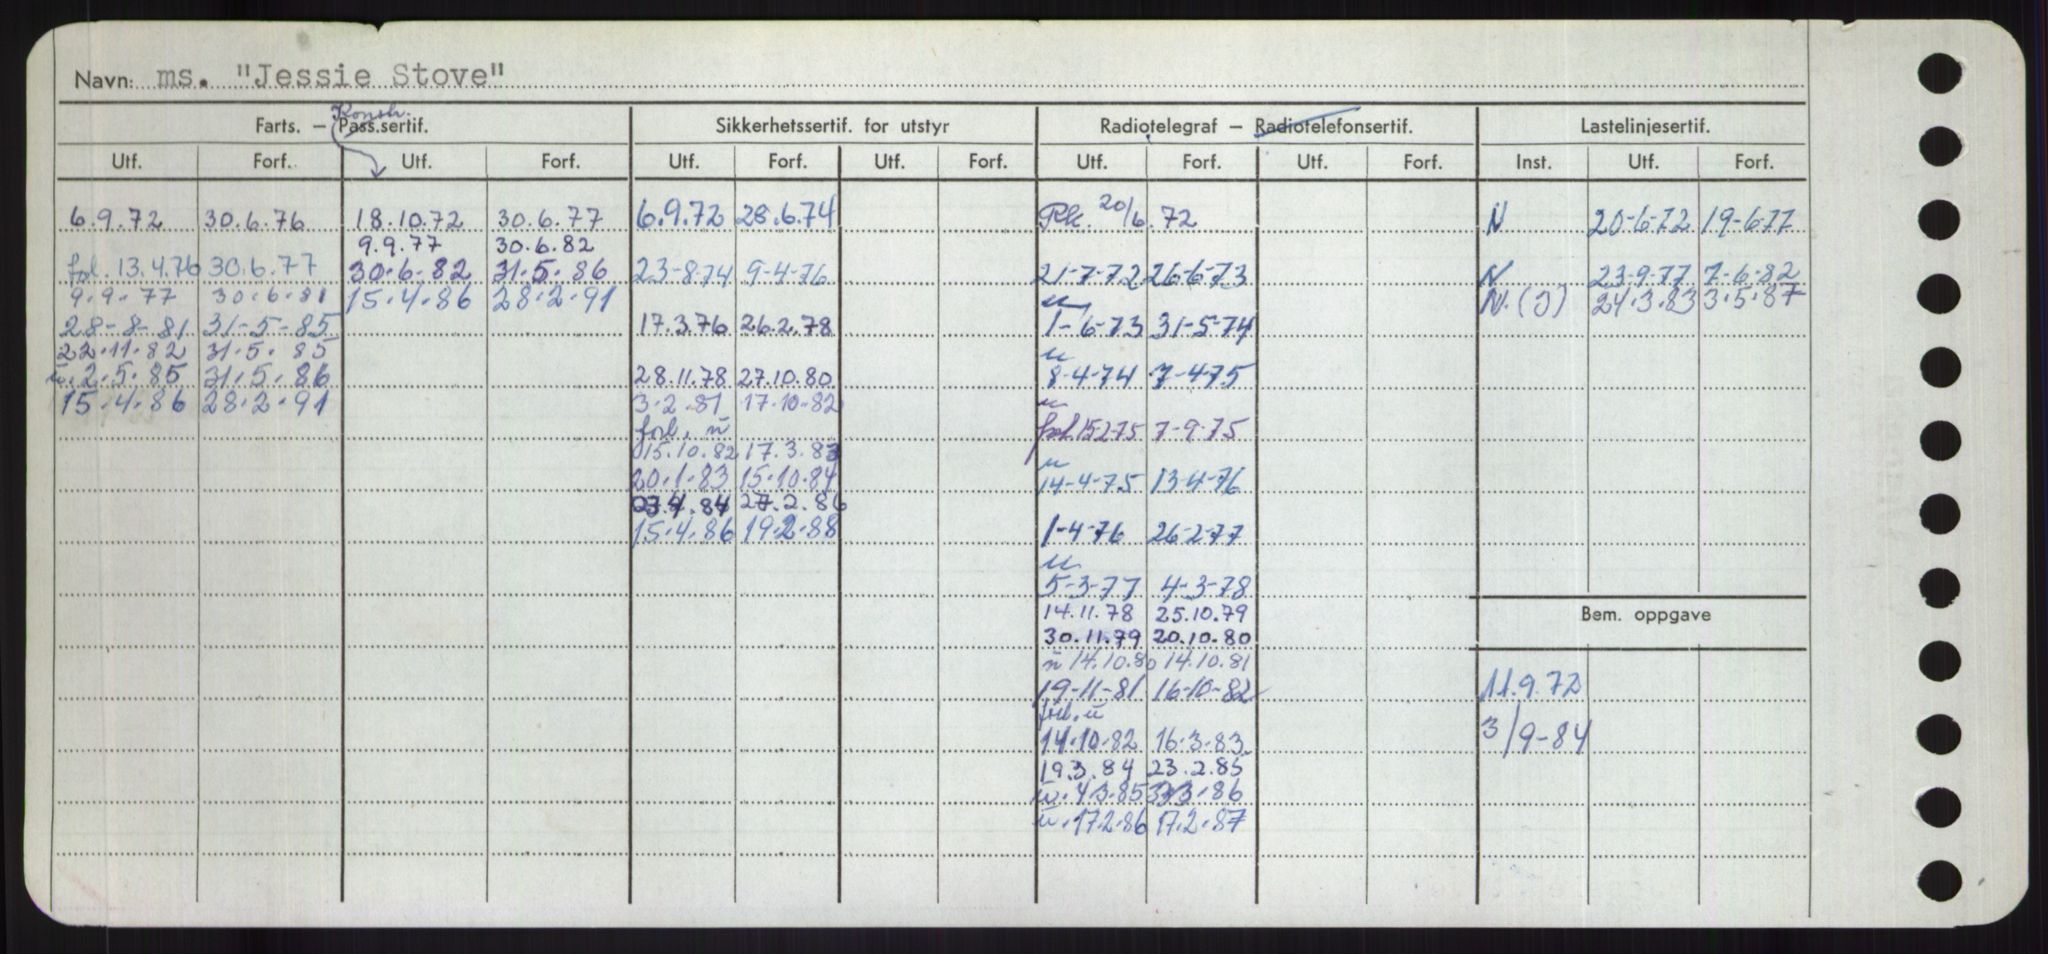 Navn: ms. "Jessie Stove"
Konstr.
Farts. — Pass.sertif. Sikkerhetssertif. for utstyr Radiotelegraf — Radiotelefonsertif. Lastelinjesertif.
Utf. Forf. Utf. Forf. Utf. Forf. Utf. Forf. Utf. Forf. Utf. Forf. Inst. Utf. Forf.
6.9.72 30.6.76 18.10.72 30.6.77 6.9.72 28.6.74 Rk. 20/6.72 N 20-6-72 19-6-77
9.9.77 30.6.82
fol. 13.4.76 30.6.77 30.6.82 31.5.86 23-8-74 9-4-76 21-7-72 26-6-73 N 23-9-77 7-6-82
9.9.77 30.6.81 15.4.86 28.2.91 u N.(J) 24.3.83 3.5.87
28-8-81 31-5-85 17.3.76 26.2.78 1-6-73 31-5-74
22.11.82 31.5.85 u
u. 2.5.85 31.5.86 28.11.78 27.10.80 8-4-74 7-4-75
15.4.86 28.2.91 3.2.81 17.10.82 u
forl. u fol 15-2-75 7-9-75
15.10.82 17.3.83 u
20.1.83 15.10.84 14-4-75 13-4-76
27.2.86
15.4.86 19.2.88 1-4-76 26-2-77
u
5-3-77 4-3-78
14.11.78 25.10.79 Bem. oppgave
30.11.79 20.10.80
u 14.10.80 14.10.81
19-11-81 16-10-82 11.9.72
forl. u
14.10.82 16.3.83 3/9-84
19.3.84 23.2.85
u. 4.3.85 3.3.86
u. 17.2.86 17.2.87